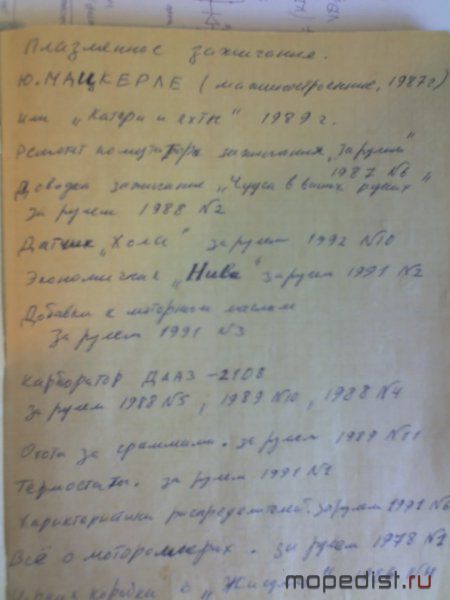 Плазменное зажигание.
Ю. МАЦКЕРЛЕ (машиностроение, 1987г)
или „Катера и яхты“ 1989 г.
Ремонт зажигания „За рулём“
1987 №6
Доводка зажигание „Чудеса в ваших руках“
За рулем 1988 №2
Датчик „Хола“ за рулем 1992 №10
Экономичная „Нива“ За рулем 1991 №2
Добавки к моторным маслам
За рулем 1991 №3
Карбюратор ДААЗ-2108
За рулем 1988 №5, 1989 №10, 1988 №4
Охота за граммами. За рулем 1989 №11
Термостаты. за рулем 1991 №1
Характеристики распределителей. За рулем 1991 №6
Всё о мотор. за рулем 1978 №1
коробки с №4
mopedist.ru